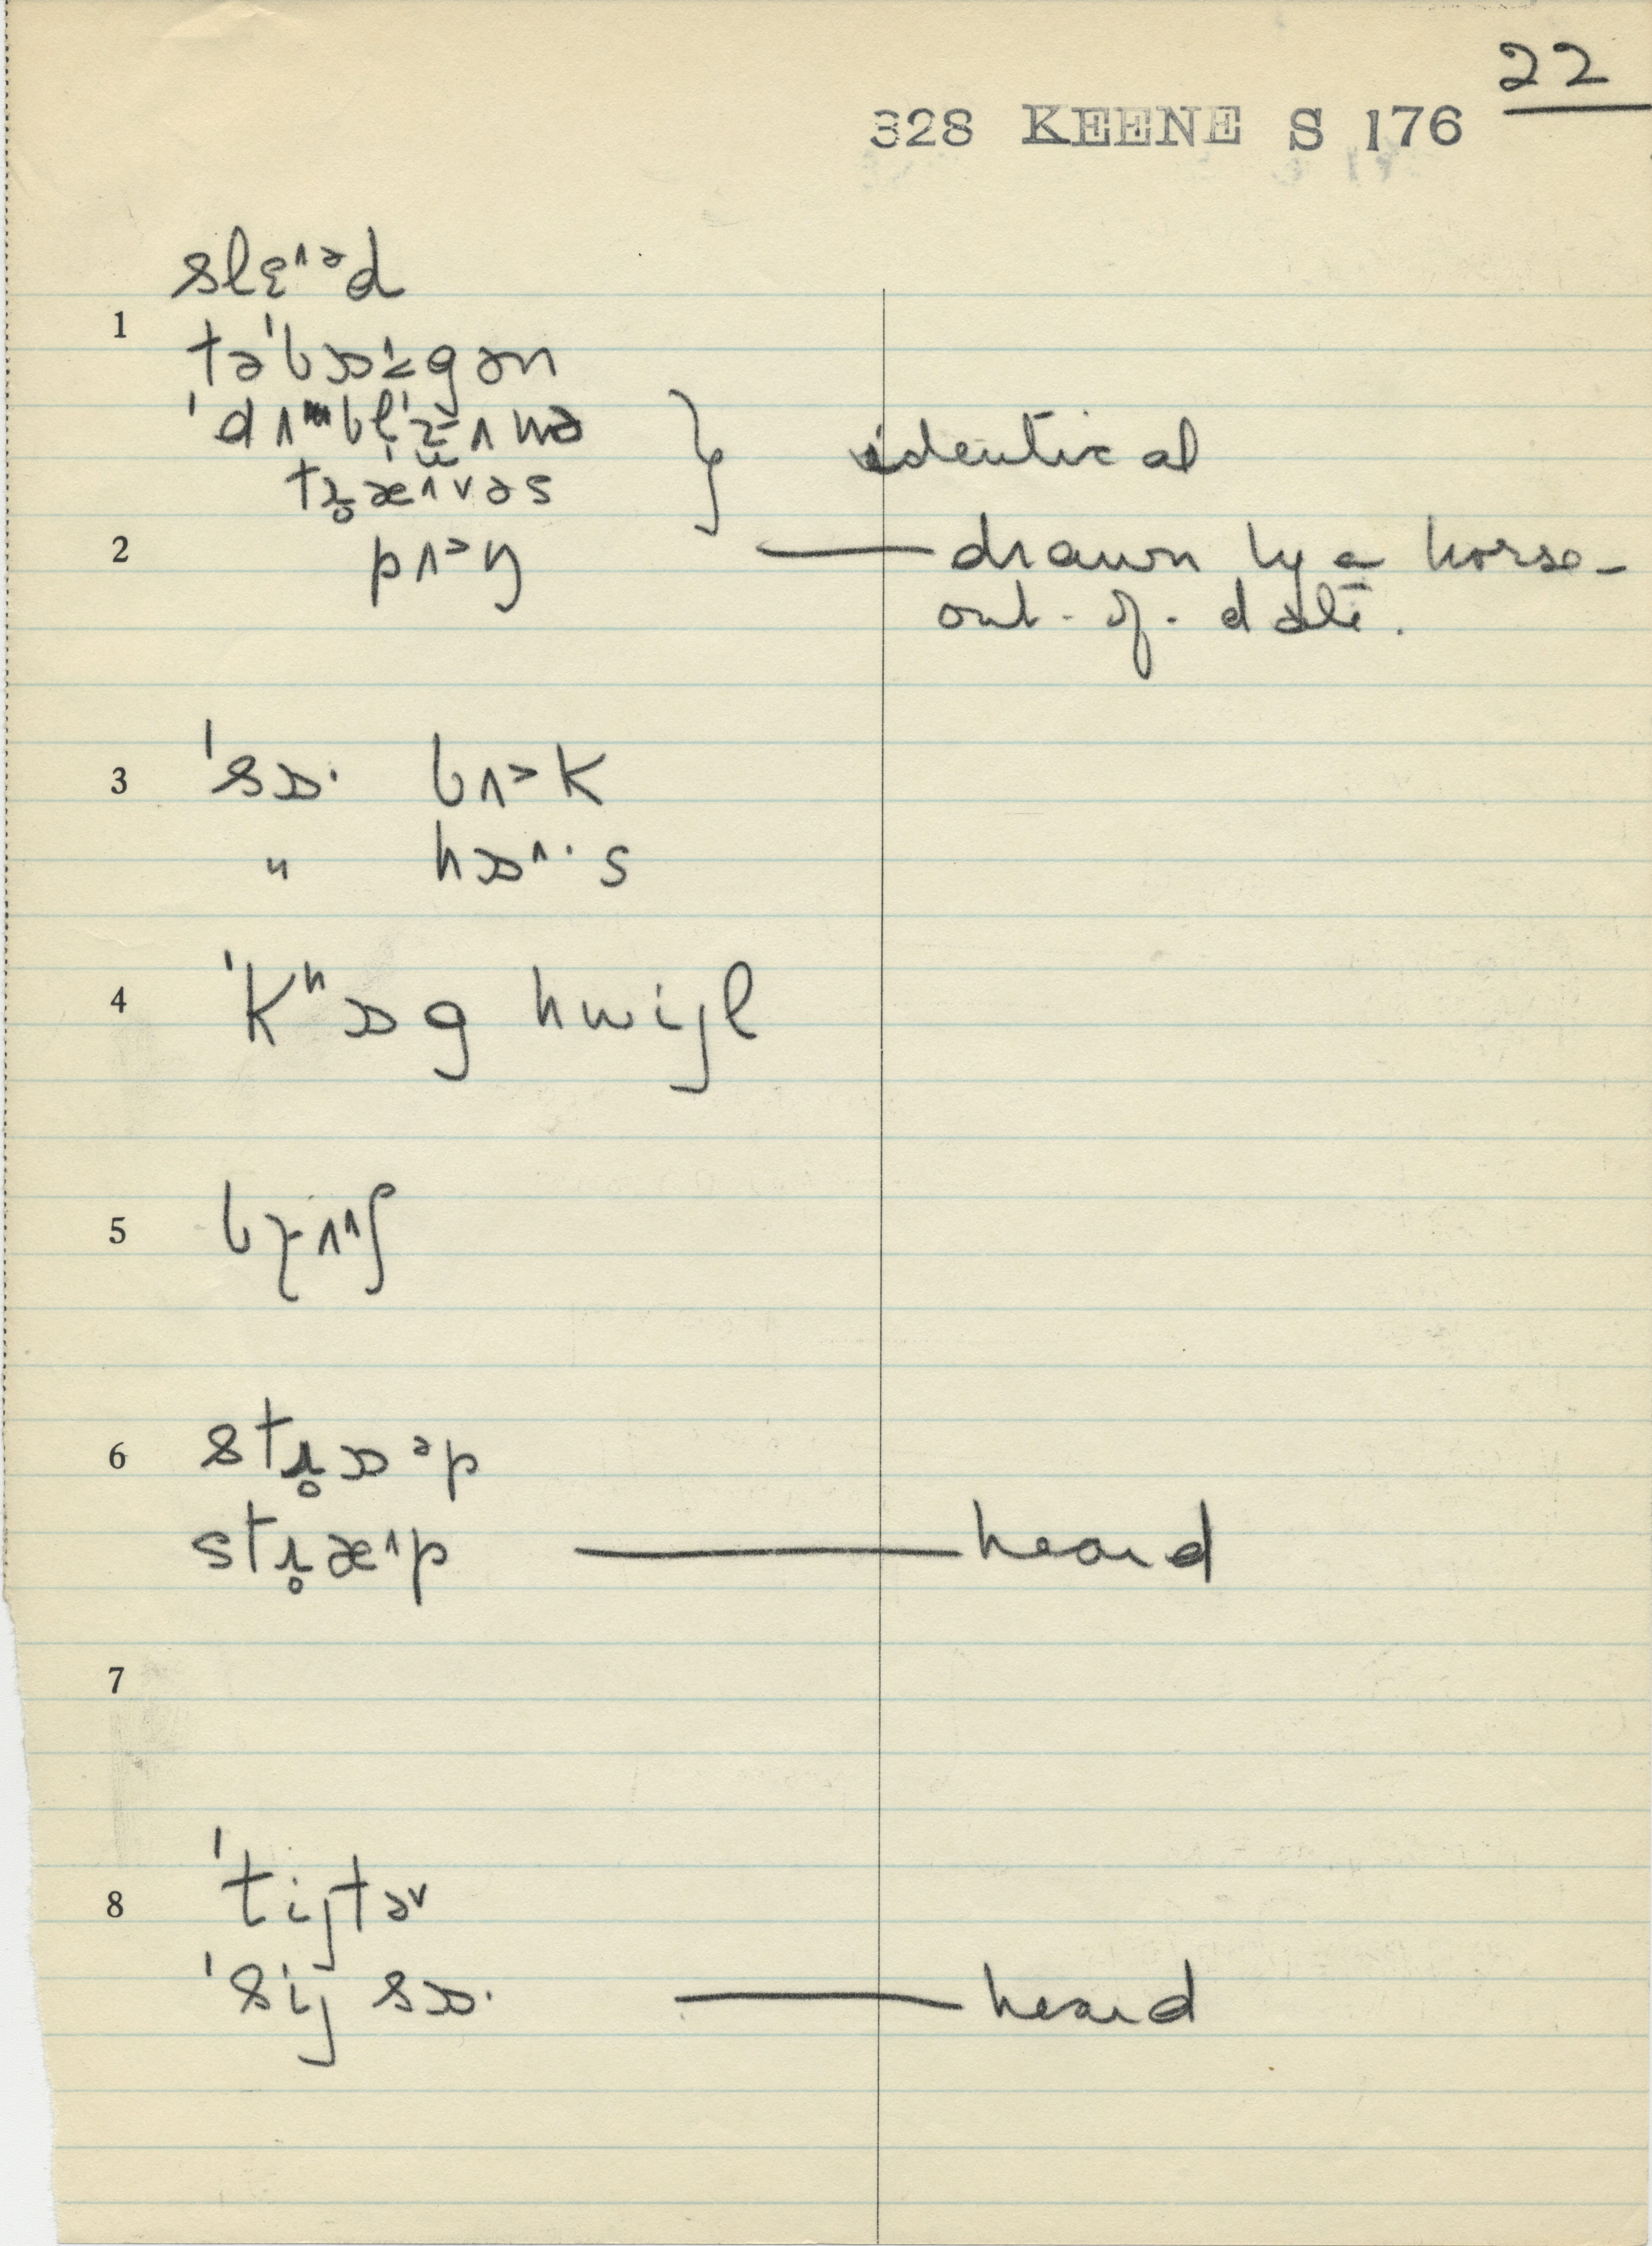 22
328 KEENE S 176
slɛ˄ᵊd
1
təˈbɒ˄gən
identical
tɹ̥æ˄vəs
2 pʌᵊŋ — drawn by a horse-
out-of-date.
3 ˈsɒ· bʌᵊk
" hɒ˄·s
4 ˈkʰɒg hwijl
5
6 stɹ̥ɒᵊp
stɹ̥æ˄p — heard
7
8 ˈtijtə˅
ˈsij sɒ· — heard